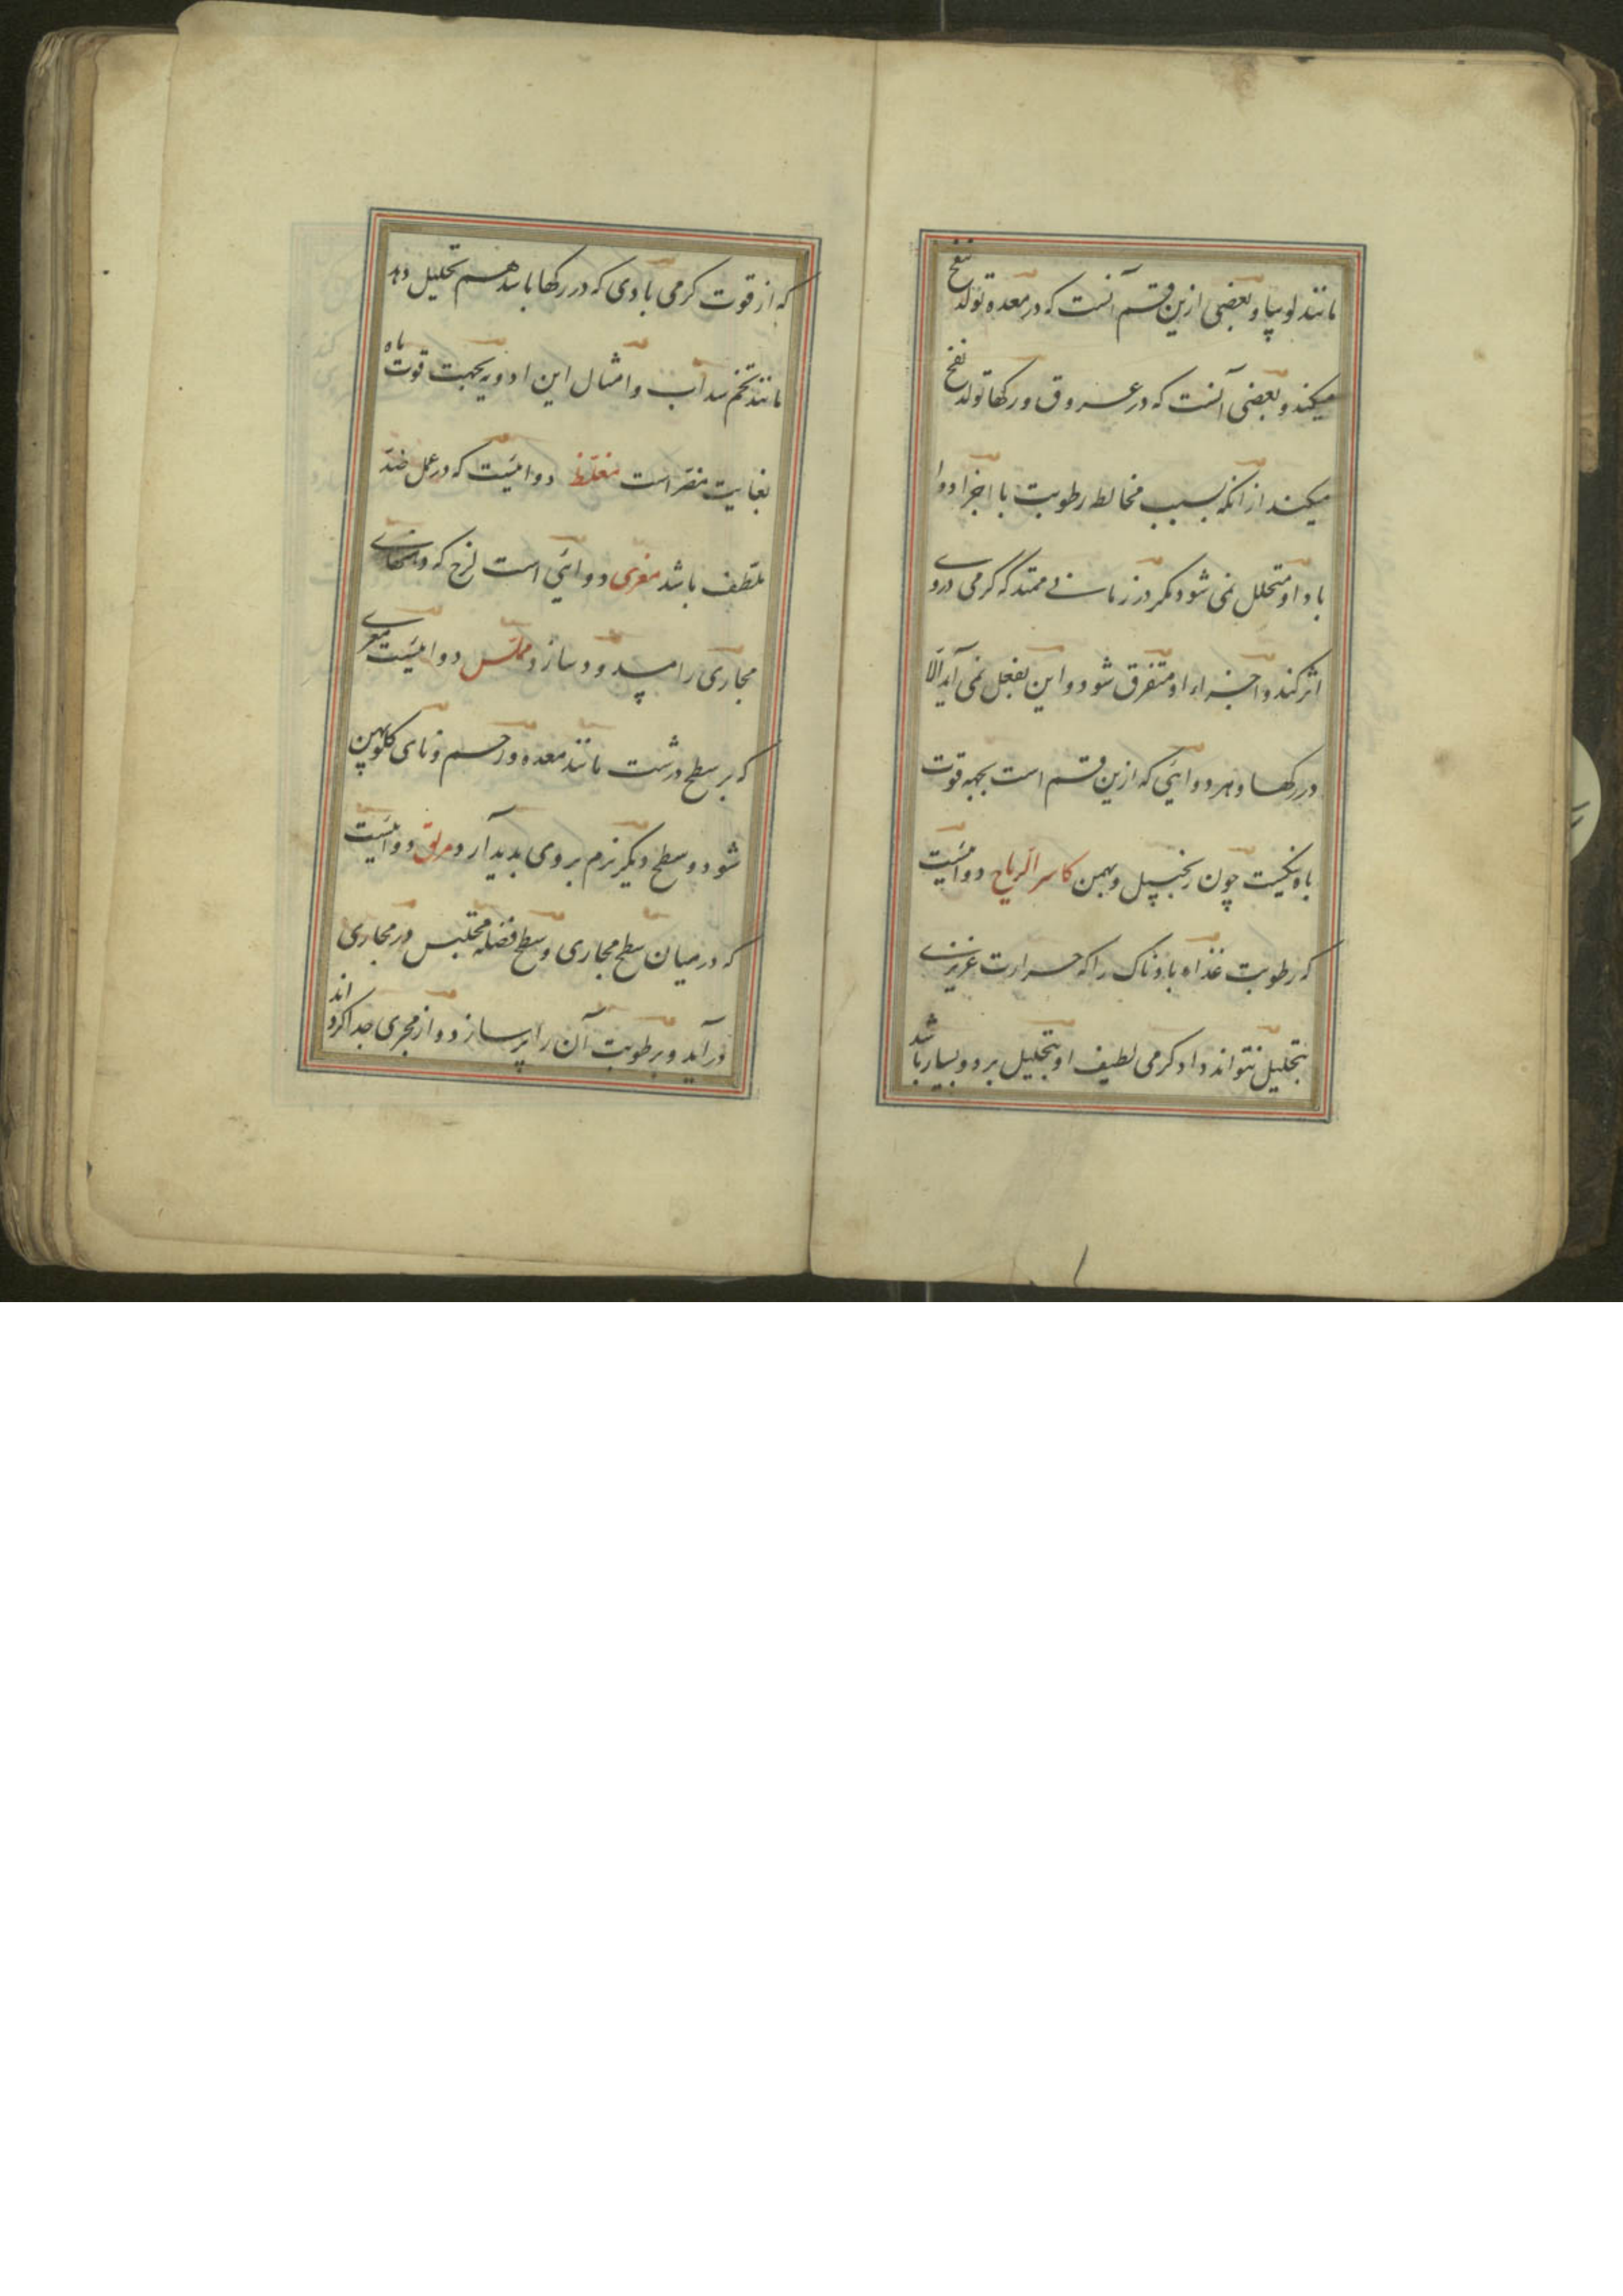 مانند لوبیا و بعضی ازین قسم آنست که در معده تولد نفخ
میکند و بعضی آنست که در عروق و رکها تولد نفخ
میکند از آنکه بسبب مخالطه رطوبت با اجزا دوا
باد او متحلل نمی شود مکر در زمانی ممتد که کرمی در وی
اثر کند و اجزاء او متفرق شود و این بفعل نمی آید الّا
در رکها و هر دوایی که ازین قسم است بجهه قوت
باه نیکست چون زنجبیل و بهمن کاسر الریاح دوائیست
که رطوبت غذاء بادناک را که حرارت غریزی
بتحلیل نتواند داد کرمی لطیف او بتحلیل برد و بسیار باشد
که از قوت کرمی بادی که در رکها باشد هم تحلیل دهد
مانند تخم سداب و امثال این ادویه بجهت قوت باه
بغایت مضر است مغلظ دوائیست که در عمل ضدّ
ملطف باشد مغری دوایی است لزج که دهنهای
مجاری را مسدود سازد مملّس دوائیست مغری
که بر سطح درشت مانند معده و رحم و نای کلو پهن
شود و سطح دیکر نرم بروی پدید آرد مزلق دوائیست
که در میان سطح مجاری و سطح فضله محتبس در مجاری
درآید و برطوبت آن را پر سازد و از مجری جدا کرداند